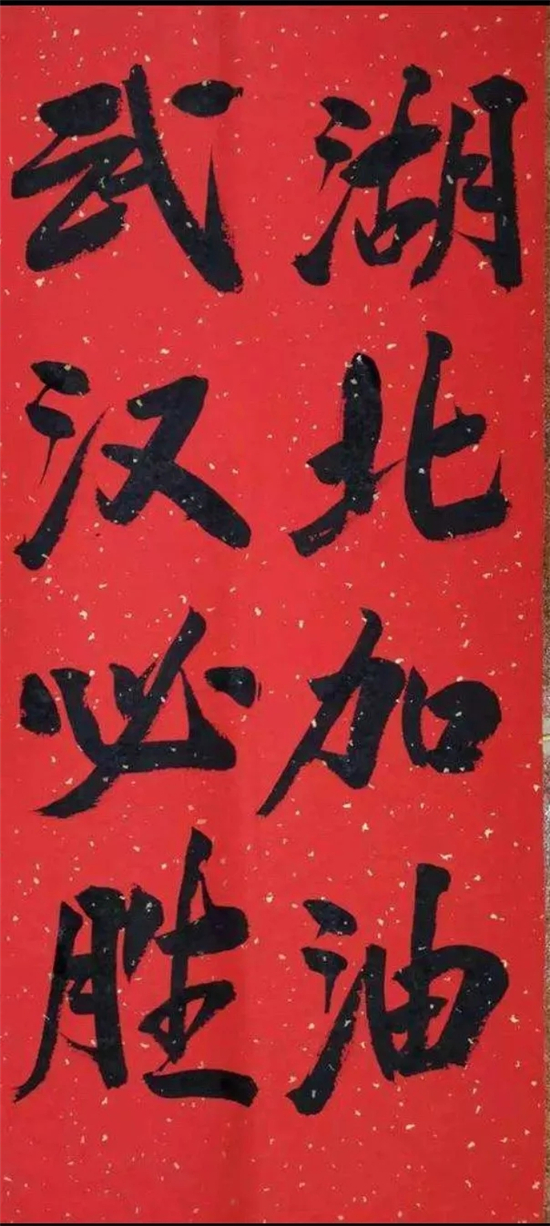 湖北加油
武汉必胜